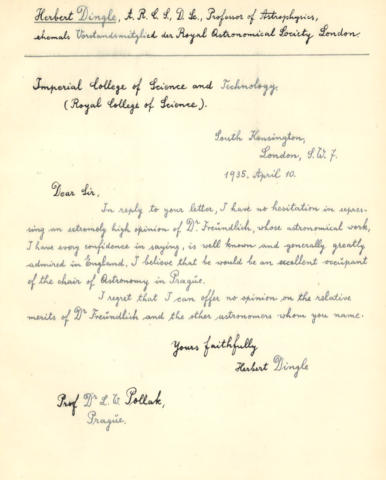 Herbert Dingle, A. R. C. S., D. Sc., Professor of Astrophysics,
ehemals Vorstandsmitglied der Royal Astronomical Society London.
Imperial College of Science and Technology.
(Royal College of Science).
South Kensington,
London, S.W. 7.
1935. April 10.
Dear Sir,
In reply to your letter, I have no hesitation in expres-
sing an extremely high opinion of Dr Freündlich, whose astronomical work,
I have every confidence in saying, is well known and generally greatly
admired in England. I believe that he would be an excellent occüpant
of the chair of Astronomy in Pragüe.
I regret that I can offer no opinion on the relative
merits of Dr Freündlich and the other astronomers whom you name.
Yours faithfully
Herbert Dingle
Prof Dr L. W. Pollak,
Pragüe.